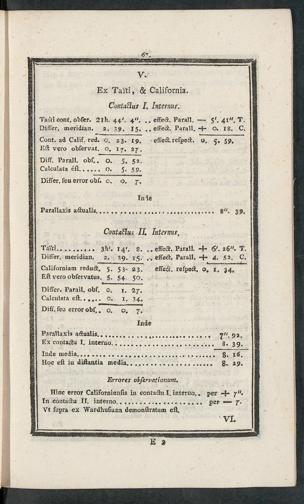 67.
V.
Ex Taïti, & California.
Contactus I. Internus.
Taïti cont. obser. 21h. 44'. 4". .. effect. Parall. — 5'. 41". T.
Differ. meridian. 2. 39. 15. .. effect. Parall. + 0. 18. C.
Cont. ad Calif. red. 0. 23. 19. effect. respect. 0. 5. 59.
Est vero observat. 0. 17. 27.
Diff. Parall. obs. . 0. 5. 52.
Calculata est..... 0. 5. 59.
Differ. seu error obs. 0. 0. 7.
Inde
Parallaxis actualis........................... 8". 39.
Contactus II. Internus,
Taïti.......... 3h'. 14'. 8. .. effect. Parall. + 6'. 26". T.
Differ. meridian. 2. 39. 15. .. effect. Parall. + 4. 52. C.
Californiam reduct. 5. 53. 23. effect. respect. 0. 1. 34.
Est vero observatus. 5. 54. 50.
Differ. Parall. obs. 0. 1. 27.
Calculata est...... 0. 1. 34.
Diff. seu error obs. . 0. 0. 7.
Inde
Parallaxis actualis........................... 7". 92.
Ex contactu I. interno........................ 8. 39.
Inde media........................... 8. 16.
Hoc est in distantia media........................ 8. 29.
Errores observationum.
Hinc error Californiensis in contactu I. interno.. per + 7".
In contactu II. interno........................ per — 7.
Vt supra ex Wardhusiana demonstratum est.
VI.
E 2